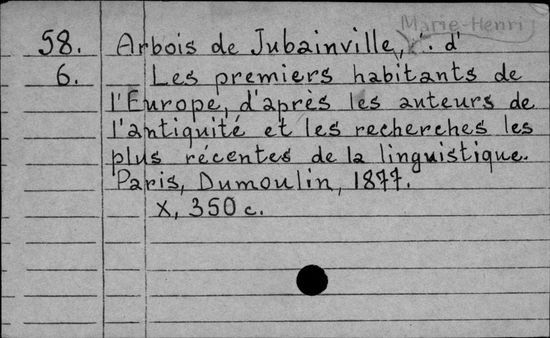 Marie-Henri
58. Arbois de Jubainville, . d'
6. Les premiers habitants de
l'Europe, d'après les auteurs de
l'antiquité et les recherches les
plus récentes de la linguistique.
Paris, Dumoulin, 1877.
X, 350 c.